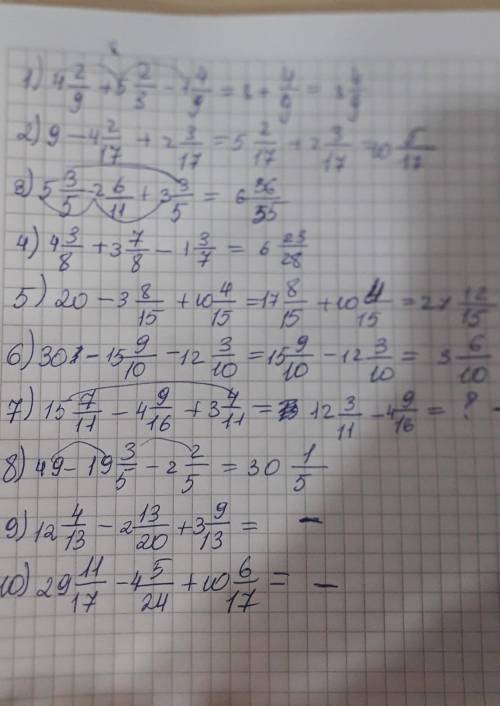 1) 4 2/9 + 5 2/3 - 1 4/9 = 8 + 4/9 = 8 4/9
2) 9 - 4 2/17 + 2 3/17 = 5 2/17 + 2 3/17 = 10 5/17
3) 5 3/5 - 2 6/11 + 3 3/5 = 6 36/55
4) 4 3/8 + 3 7/8 - 1 3/7 = 6 23/28
5) 20 - 3 8/15 + 10 4/15 = 17 8/15 + 10 4/15 = 27 12/15
6) 30 - 15 9/10 - 12 3/10 = 15 9/10 - 12 3/10 = 3 6/10
7) 15 7/11 - 4 9/16 + 3 4/11 = 12 3/11 - 4 9/16 = ? -
8) 49 - 19 3/5 - 2 2/5 = 30 1/5
9) 12 4/13 - 2 13/20 + 3 9/13 = -
10) 29 11/17 - 4 5/24 + 10 6/17 = -